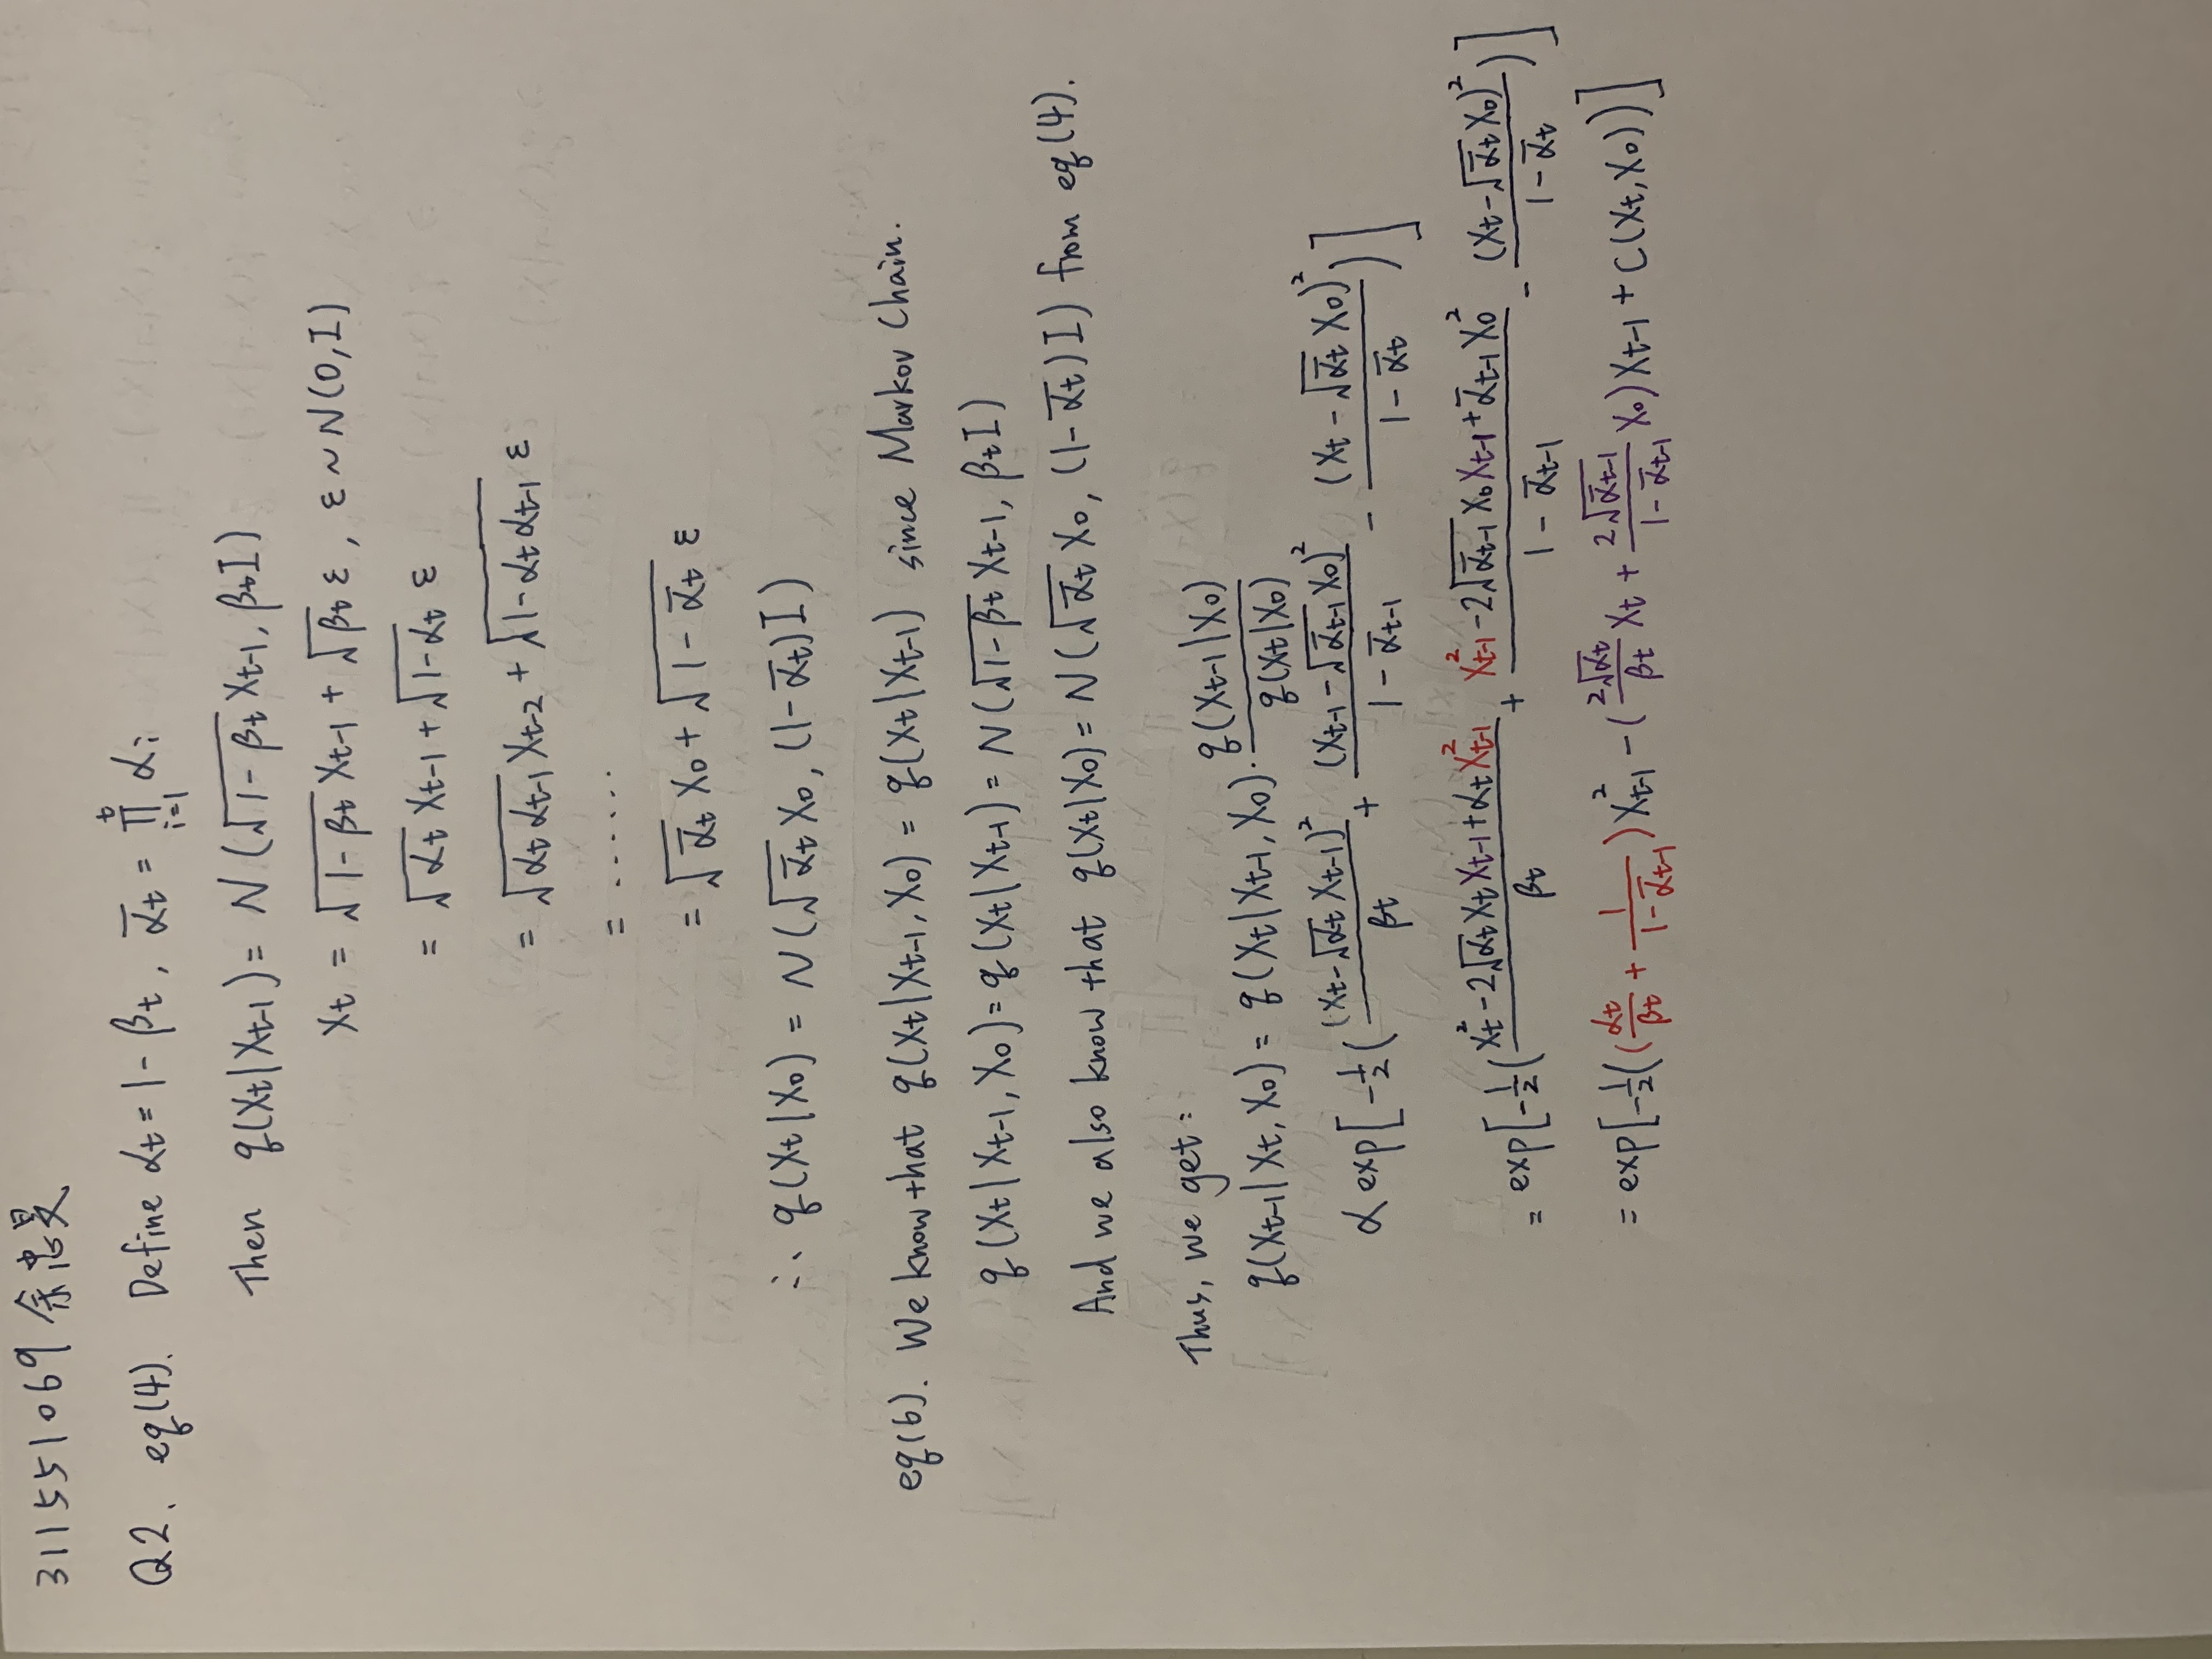 311551069 余忠旻
Q2. eq(4). Define αt = 1 - βt, ᾱt = ∏_{i=1}^{t} αi
Then q(Xt|Xt-1) = N(√(1-βt) Xt-1, βtI)
Xt = √(1-βt) Xt-1 + √βt ε, ε ~ N(0, I)
= √αt Xt-1 + √(1-αt) ε
= √(αt αt-1) Xt-2 + √(1-αt αt-1) ε
= ......
= √ᾱt X0 + √(1-ᾱt) ε
∴ q(Xt|X0) = N(√ᾱt X0, (1-ᾱt)I)
eq(6). We know that q(Xt|Xt-1, X0) = q(Xt|Xt-1) since Markov Chain.
q(Xt|Xt-1, X0) = q(Xt|Xt-1) = N(√(1-βt) Xt-1, βtI)
And we also know that q(Xt|X0) = N(√ᾱt X0, (1-ᾱt)I) from eq(4).
Thus, we get:
q(Xt-1|Xt, X0) = q(Xt|Xt-1, X0) · q(Xt-1|X0) / q(Xt|X0)
∝ exp[-1/2((Xt-√αt Xt-1)²/βt + (Xt-1-√ᾱt-1 X0)²/(1-ᾱt-1) - (Xt-√ᾱt X0)²/(1-ᾱt))]
= exp[-1/2((Xt²-2√αt Xt Xt-1+αt Xt-1²)/βt + (Xt-1²-2√ᾱt-1 X0 Xt-1+ᾱt-1 X0²)/(1-ᾱt-1) - (Xt-√ᾱt X0)²/(1-ᾱt))]
= exp[-1/2((αt/βt + 1/(1-ᾱt-1))Xt-1² - (2√αt/βt Xt + 2√ᾱt-1/(1-ᾱt-1) X0)Xt-1 + C(Xt, X0))]